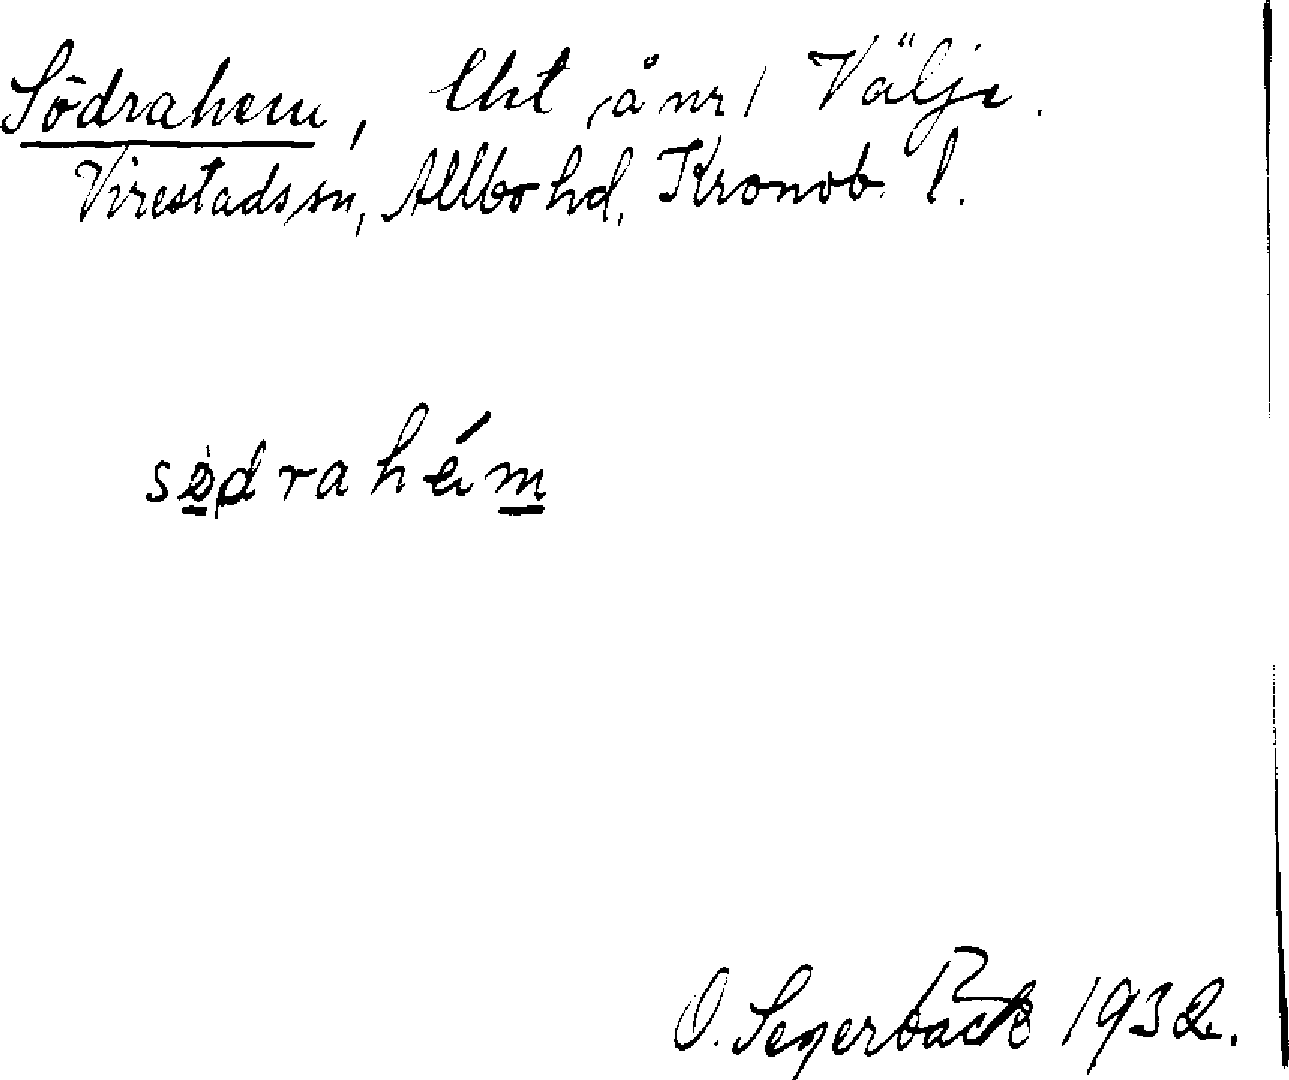 Södrahem, lht å nr 1 Välje.
Virestads sn, Allbo hd, Kronob. l.
södrahém
O. Segerbäck 1932.